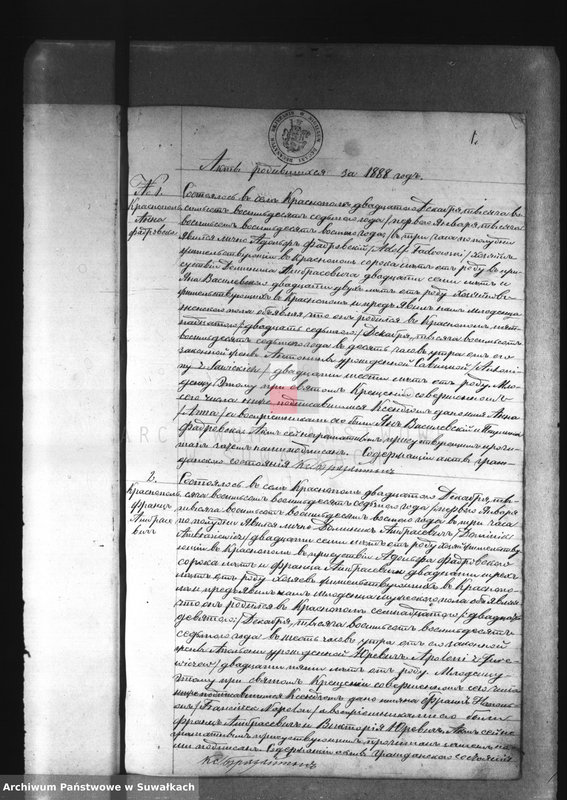 1.
Акты родившихся за 1888 годъ.
№ 1.
Краснополь
Анна
Фабровска
Состоялось въ селѣ Краснополѣ двадцатаго Декабря, тысяча во-
семьсотъ восемьдесятъ седьмаго года / перваго Января, тысяча
восемьсотъ восемьдесятъ восьмаго года, въ три часа пополудни
Явился лично Адольфъ Фабровскій
жительствующій въ Краснополѣ сорока лѣтъ отъ роду въ при-
сутствіи Доминика Амбрасевича двадцати семи лѣтъ и
Яна Василевскаго двадцати двухъ лѣтъ отъ роду хозяевъ
жительствующихъ въ Краснополѣ и предъявилъ намъ младенца
женскаго пола объявляя, что онъ родился въ Краснополѣ пят-
надцатаго / двадцать седьмаго / Декабря, тысяча восемьсотъ
восемьдесятъ седьмаго года въ десять часовъ утра отъ его
законной жены Антонины урожденной
двадцати шести лѣтъ отъ роду. Мла-
денцу этому при святомъ Крещеніи совершенномъ
сего числа нижеподписавшимся Ксендзомъ дано имя Анна
/Anna/ а воспріемниками были Янъ Василевскій и
Фабровска. Актъ сей неграмотнымъ присутствующимъ прочи-
танъ нами подписанъ. Содержащій акты граж-
данскаго состоянія
2.
Краснополь
Францъ
Амбрасе-
вичъ
Состоялось въ селѣ Краснополѣ двадцатаго Декабря, ты-
сяча восемьсотъ восемьдесятъ седьмаго года / перваго Января
тысяча восемьсотъ восемьдесятъ восьмаго года въ три часа
пополудни Явился лично Доминикъ Амбрасевичъ /Dominik
двадцати семи лѣтъ отъ роду хозяинъ жительству-
ющій въ Краснополѣ въ присутствіи Адольфа Фабровскаго
сорока лѣтъ и Франца Амбрасевича двадцати трехъ
лѣтъ отъ роду хозяевъ жительствующихъ въ Краснопо-
лѣ и предъявилъ намъ младенца мужескаго пола объявляя
что онъ родился въ Краснополѣ семнадцатаго / двадцать
девятаго / Декабря, тысяча восемьсотъ восемьдесятъ
седьмаго года въ шесть часовъ утра отъ его законной
жены Аполоніи урожденной Юревичъ
двадцати пяти лѣтъ отъ роду. Младенцу
этому при святомъ Крещеніи совершенномъ сего числа
нижеподписавшимся Ксендзомъ дано имя Францъ
а воспріемниками его были
Францъ Амбрасевичъ и Викторія Юревичъ. Актъ сей не-
грамотнымъ присутствующимъ прочитанъ нами
подписанъ. Содержащій акты гражданскаго состоянія
Archiwum Państwowe w Suwałkach